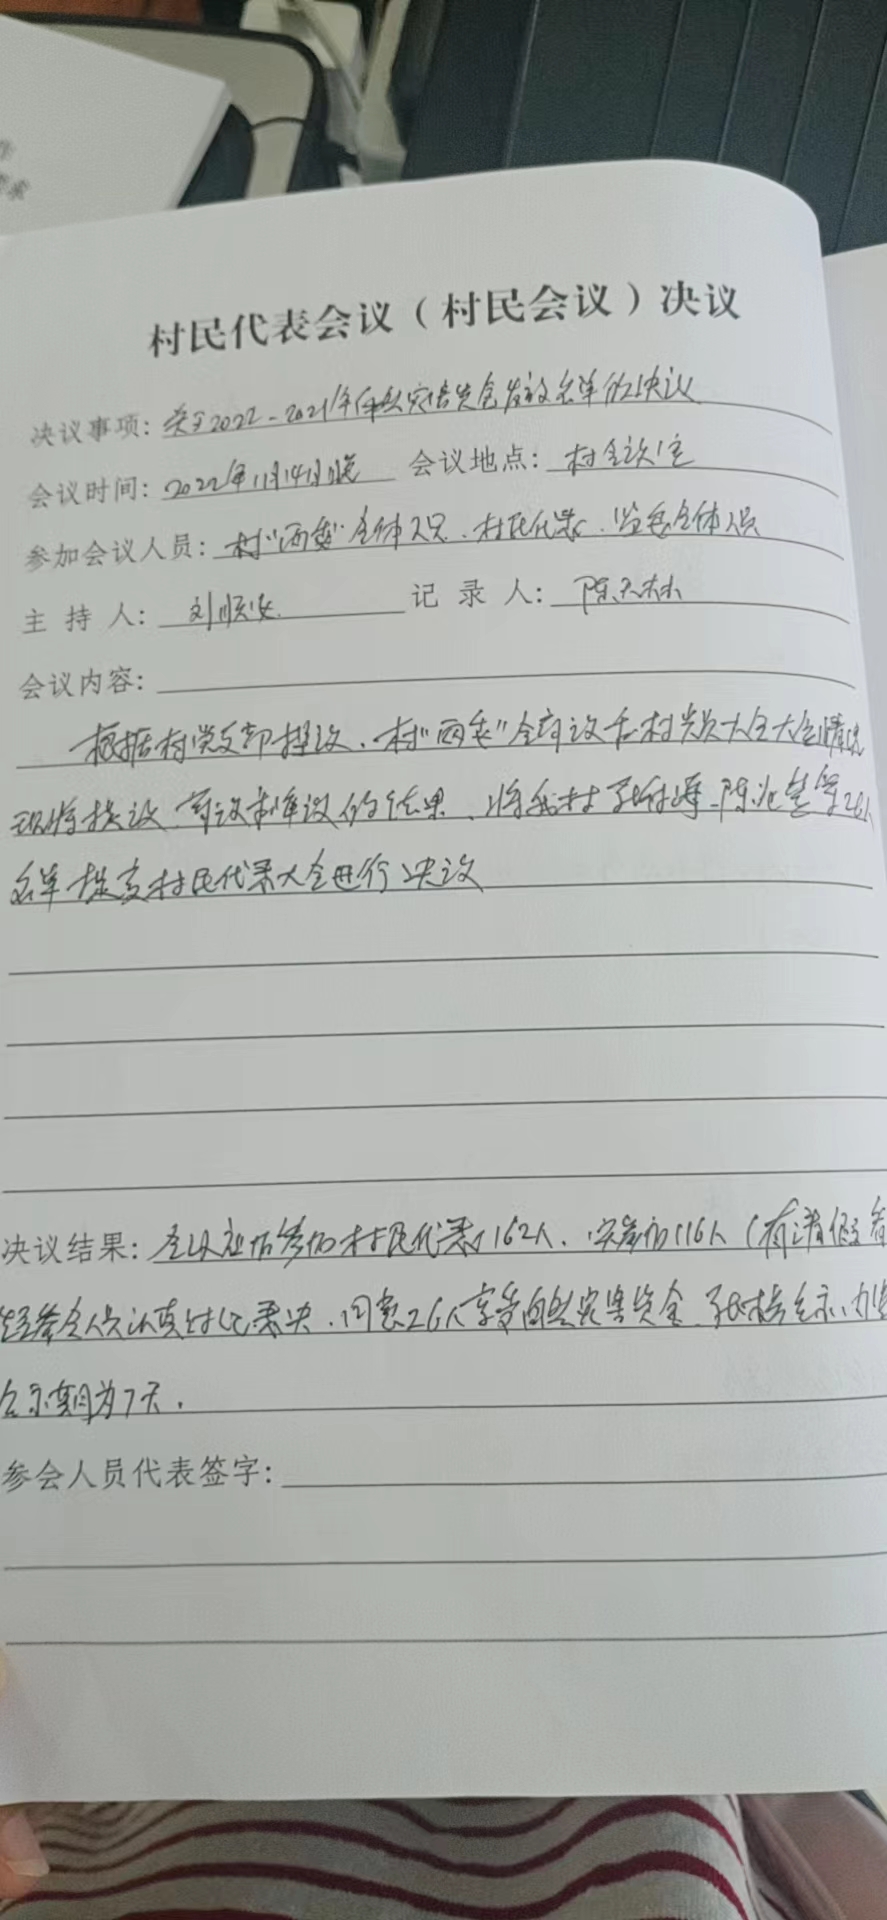 村民代表会议（村民会议）决议
决议事项：关于2022-2021年自然灾害资金发放名单的决议
会议时间：2022年11月14日晚 会议地点：村会议室
参加会议人员：村"两委"全体人员、村民代表、监委全体人员
主持人：刘顺 记录人：陈
会议内容：
根据村党支部提议、村"两委"会商议和村党员大会大会情况
现将提议、商议和审议的结果、将我村 等26人
名单提交村民代表大会进行决议
决议结果：全村应当参加村民代表162人、实参加116人（有请假
经参会人员认真讨论表决、同意26人享受自然灾害资金、
公示期为7天.
参会人员代表签字：